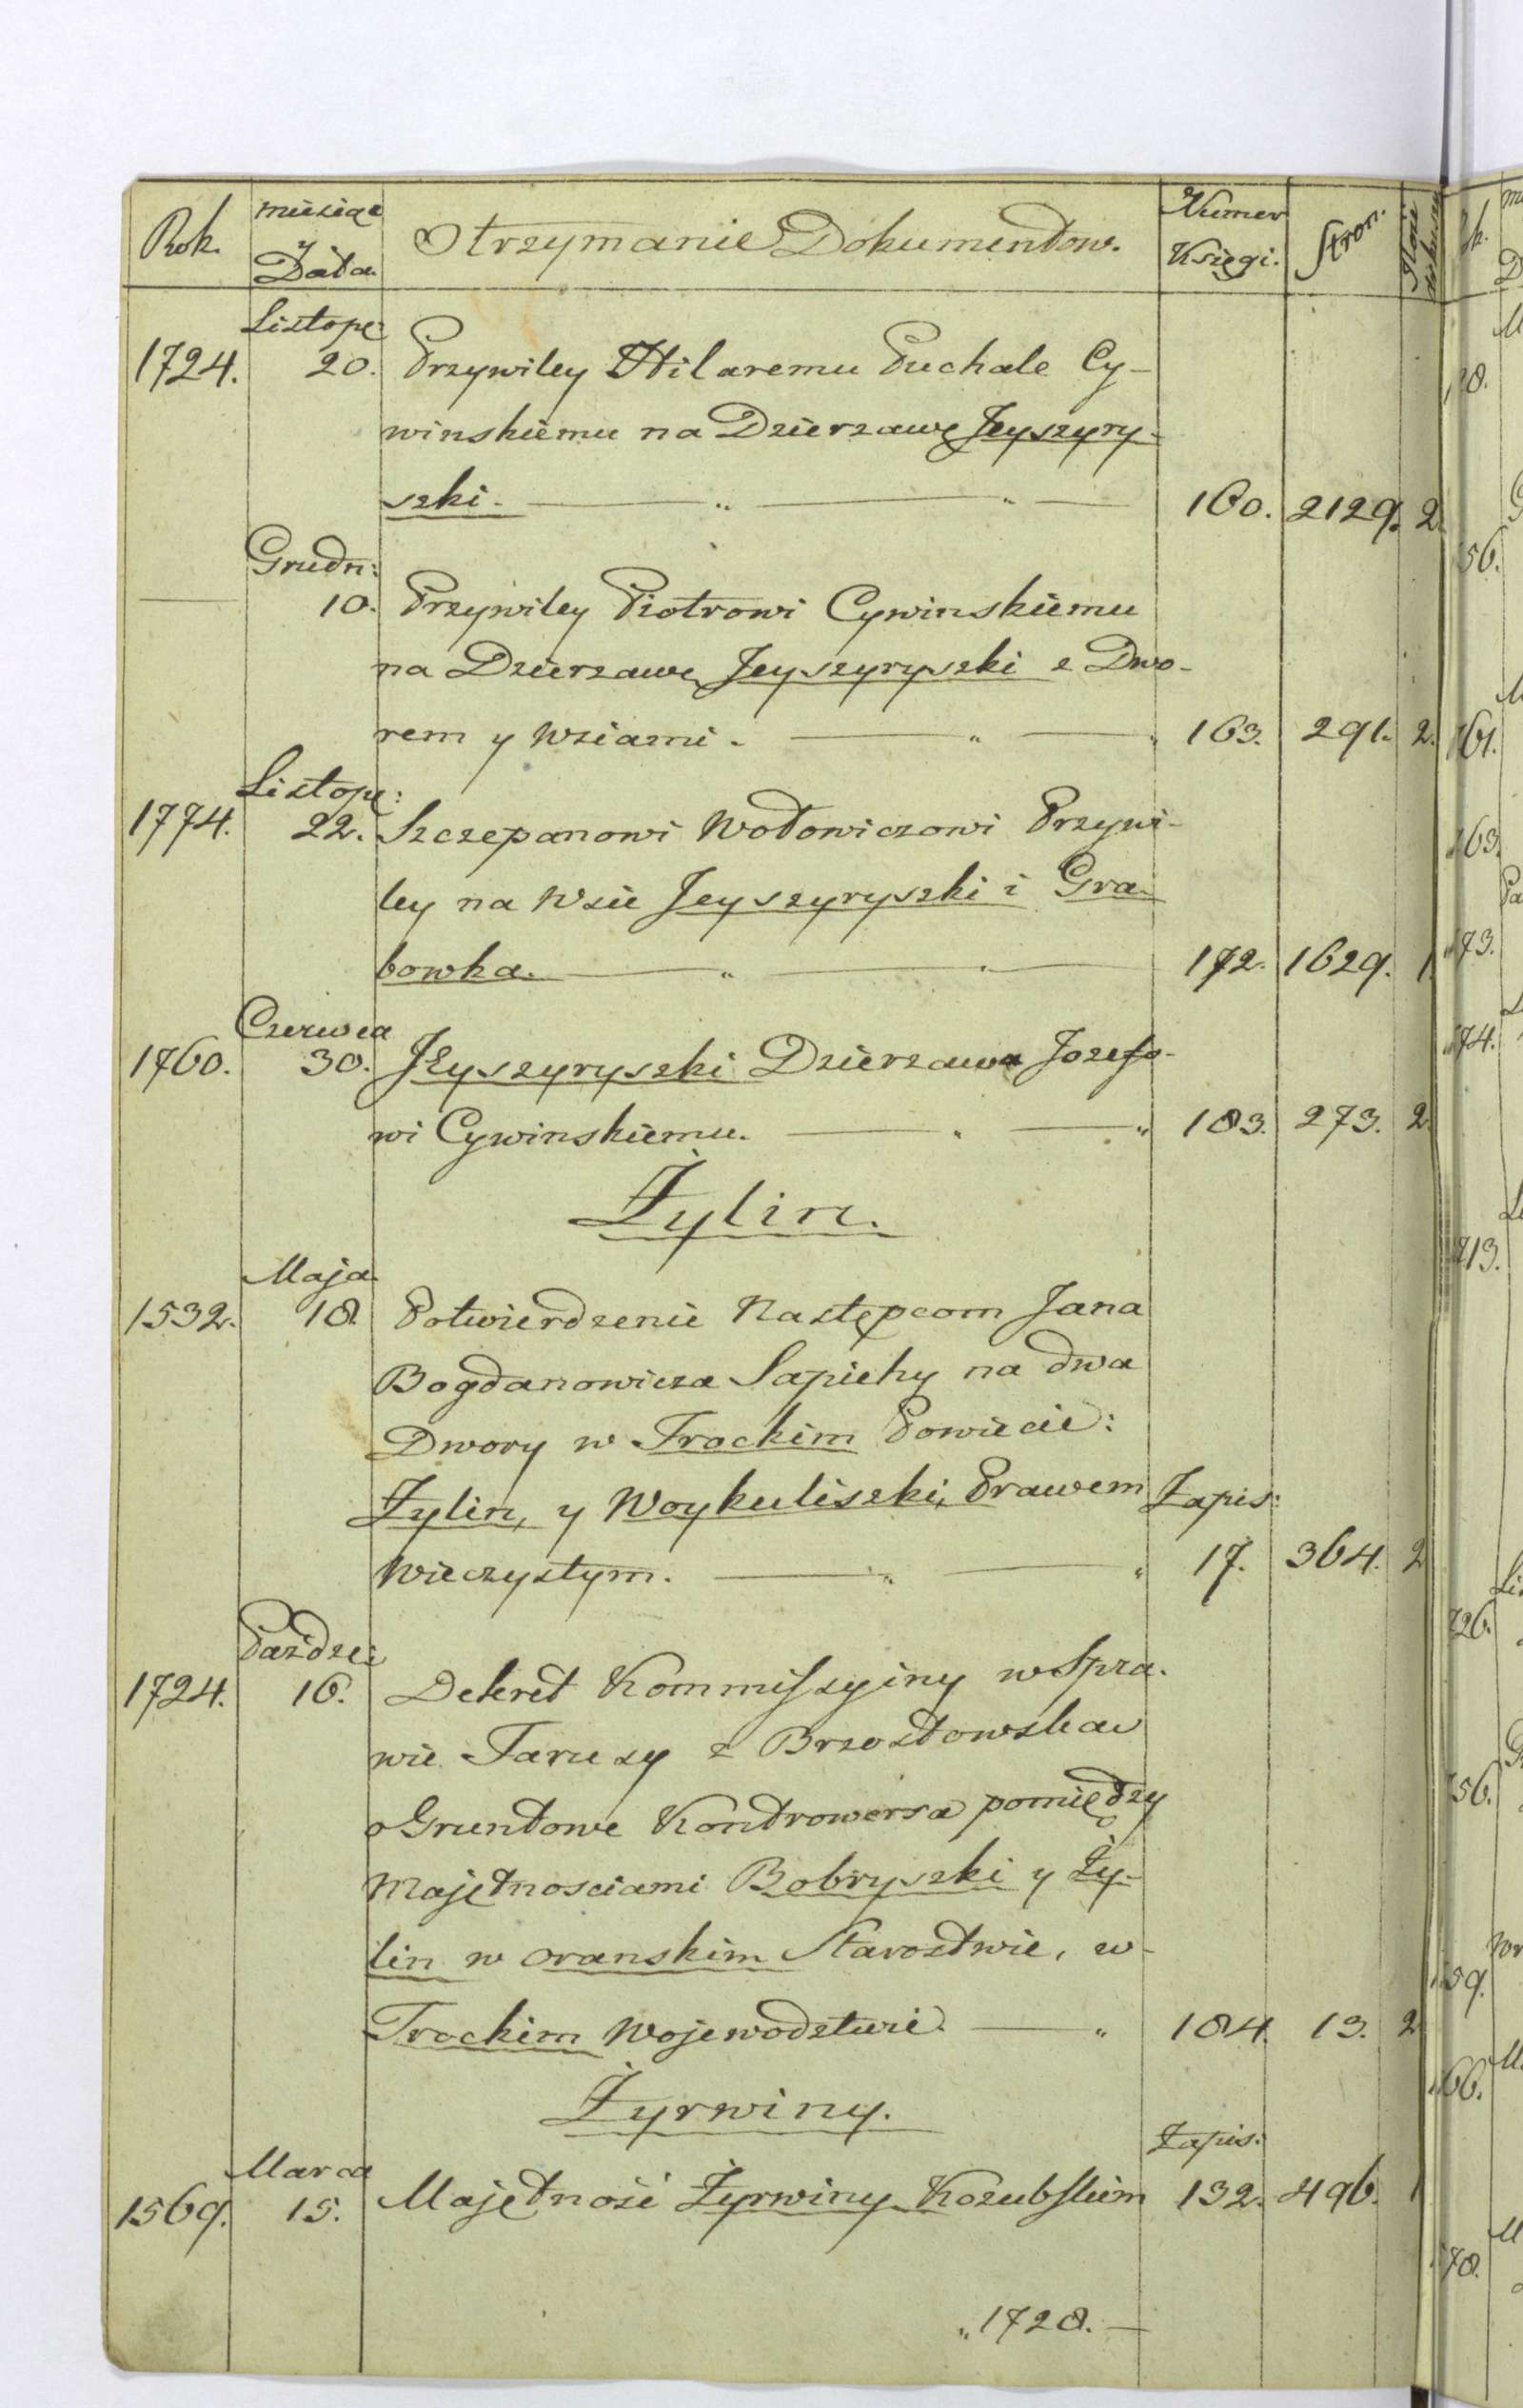 Rok. miesiąc y Data Otrzymanie Dokumentow. Numer Księgi. Stron.
Listop:
1724. 20. Przywiley Hilaremu Puchale Cy-
winskiemu na Dzierzawę Jeyszyry-
szki. 160. 2129. 2.
Grudn:
10. Przywiley Piotrowi Cywinskiemu
na Dzierzawę Jeyszyryszki z Dwo-
rem y Wsiami. 163. 291. 2.
Listop:
1774. 22. Szczepanowi Wołowiczowi Przywi-
ley na Wsie Jeyszyryszki i Gra-
bowka. 172. 1629. 1.
Czerwca
1760. 30. Jeyszyryszki Dzierzawa Jozefo-
wi Cywinskiemu. 183. 273. 2.
Żylin.
Maja
1532. 18. Potwierdzenie Następcom Jana
Bogdanowicza Sapiehy na dwa
Dwory w Trockim Powiecie:
Żylin, y Woykuliszki, Prawem Zapis:
Wieczystym. 17. 364. 2
Paździe:
1724. 16. Dekret Kommissyiny w Spra-
wie Taruzy z Brzostowska
o Gruntowe Kontrowersa pomiędzy
Majętnosciami Bobryszki y Ży-
lin w Oranskim Starostwie, w
Trockim Wojewodztwie. 184. 13. 2
Żyrwiny.
Zapis:
Marca
1569. 15. Majętność Żyrwiny Kozubskim 132. 496. 1
1728.